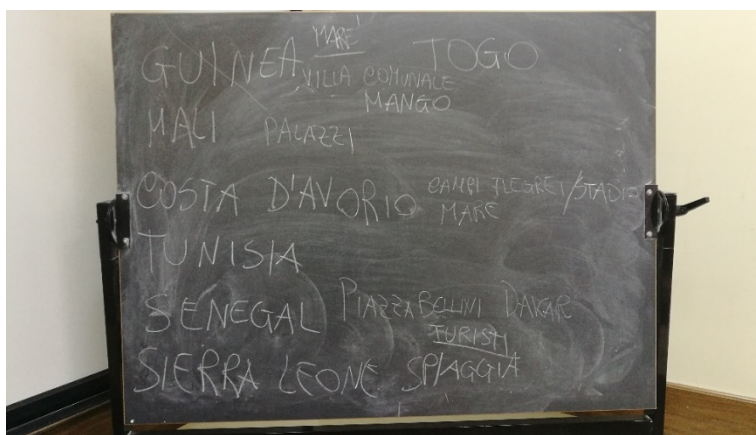 MARE
GUINEA VILLA COMUNALE TOGO
MANGO
MALI PALAZZI
COSTA D'AVORIO CAMPI FLEGREI/STADIO
MARE
TUNISIA
SENEGAL PIAZZA BELLINI DAKAR
TURISTI
SIERRA LEONE SPIAGGIA